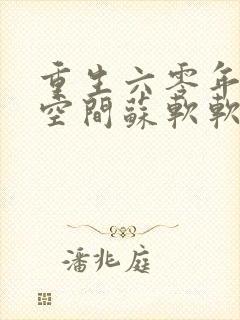 重生六零年
空間蘇軟軟
潘兆庭